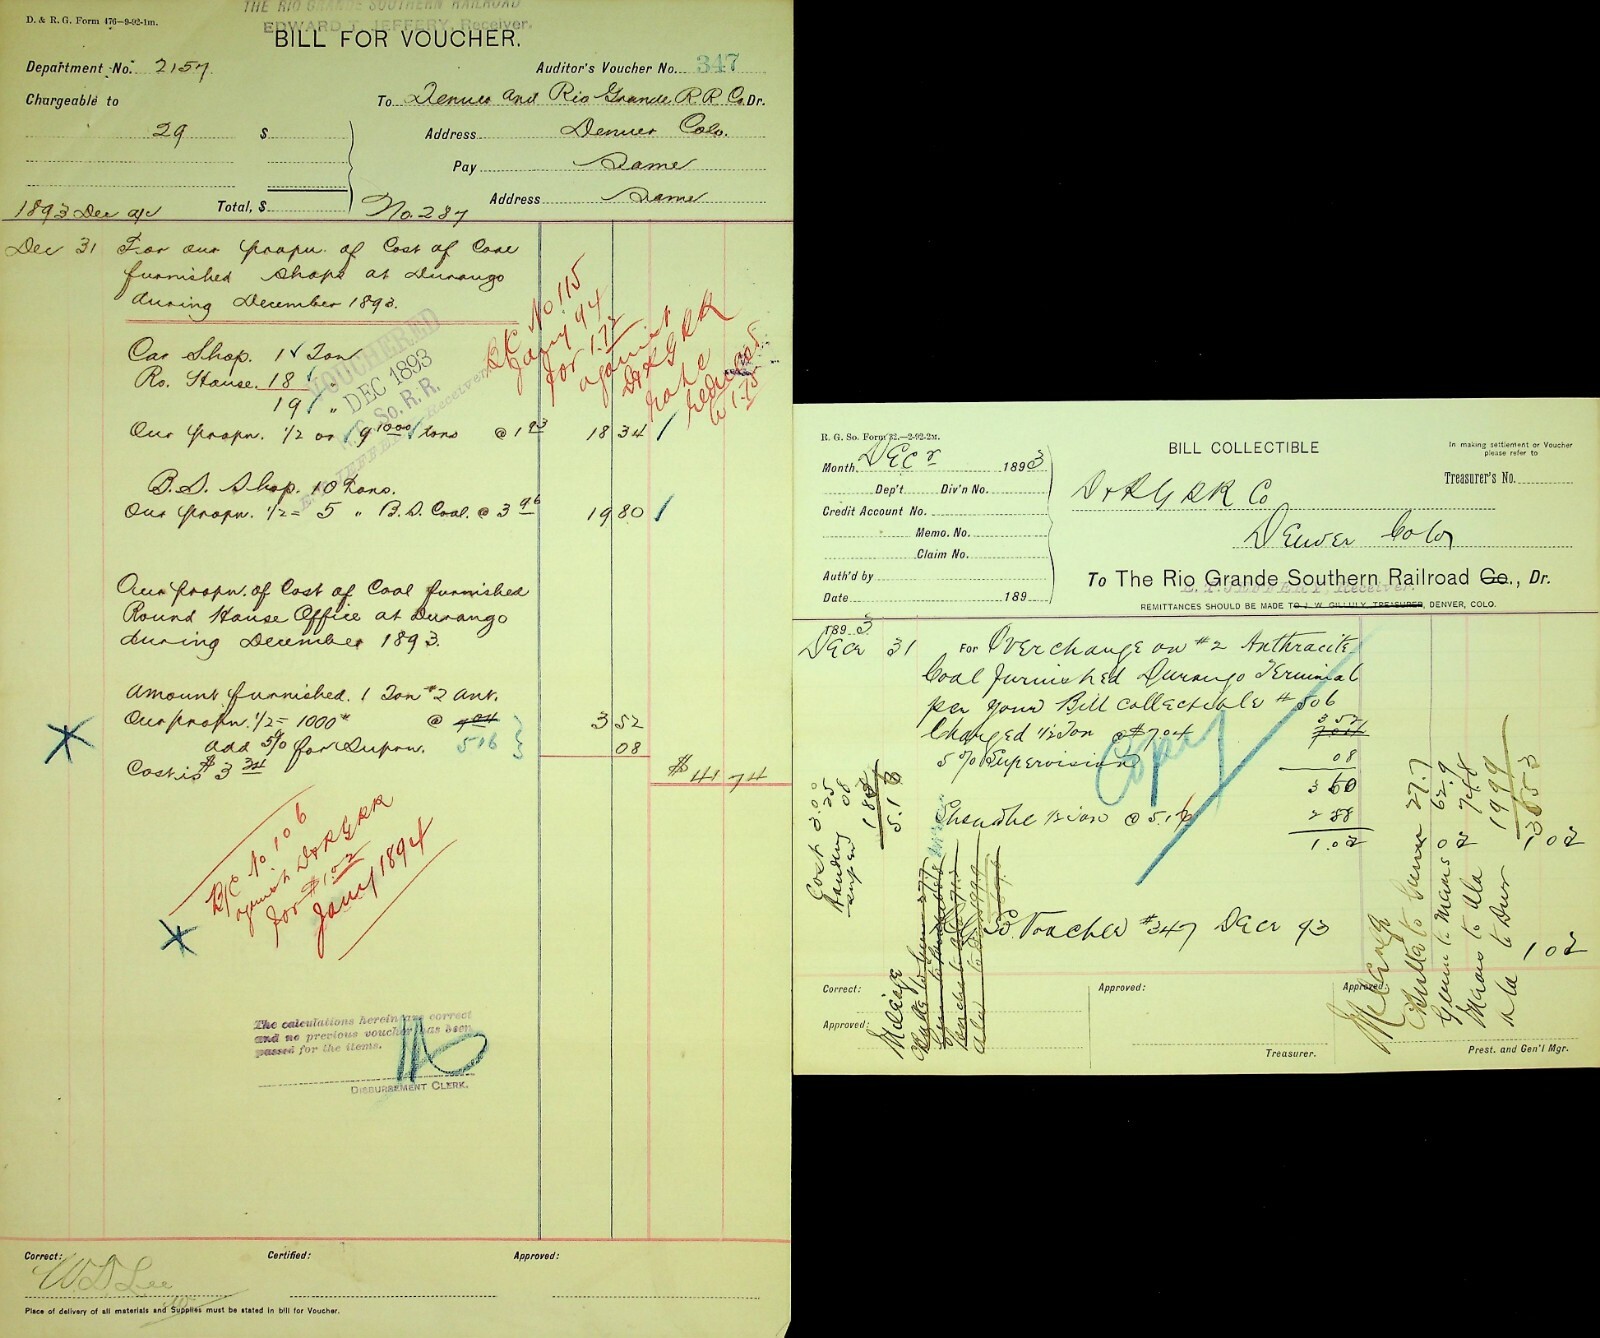 D. & R. G. Form 476—9-92-1m.
THE RIO GRANDE SOUTHERN RAILROAD
EDWARD T. JEFFERY, Receiver.
BILL FOR VOUCHER.
Department No. 2157
Auditor's Voucher No. 347
Chargeable to
To Denver and Rio Grande R.R. Co. Dr.
29 $
Address Denver Colo.
Pay Same
1893 Dec a/c Total, $
No. 287
Address Same
Dec 31 For our propn. of Cost of Coal
furnished Shops at Durango
during December 1893.
Car Shop. 1 Ton
Ro. House. 18 "
19 "
Our propn. 1/2 or 9 1000 tons @ 1 93 18 34
B.S. Shop. 10 Tons.
Our propn. 1/2 = 5 " B.S. Coal. @ 3 96 19 80
VOUCHERED
DEC 1893
So. R. R.
Receiver
B/C No 115
Jany 94
for 1.72
against
D&RGRR
rate
reduced
to 1.75
Our propn. of Cost of Coal furnished
Round House Office at Durango
during December 1893.
Amount furnished. 1 Ton #2 Ant.
Our propn. 1/2 = 1000# @ 704 3 52
516
add 5% for Supvn. 08
Cost is $3 34
$41 74
B/C No 106
against D&RGRR
for $1.02
Jany 1894
The calculations herein are correct
and no previous voucher has been
passed for the items.
DISBURSEMENT CLERK.
Correct: Certified: Approved:
W D Lee
Place of delivery of all materials and Supplies must be stated in bill for Voucher.
R. G. So. Form 32.—2-92-2M.
BILL COLLECTIBLE
In making settlement or Voucher
please refer to
Treasurer's No.
Month Decr 1893
Dep't Div'n No.
Credit Account No.
Memo. No.
Claim No.
Auth'd by
Date 189
D&RG RR Co
Denver Colo
To The Rio Grande Southern Railroad Co., Dr.
E. T. JEFFERY, Receiver.
REMITTANCES SHOULD BE MADE TO J. W. GILLULY, TREASURER, DENVER, COLO.
1893
Decr 31 For Overcharge on #2 Anthracite
Coal furnished Durango Terminal
per your Bill collectible #506
Charged 1/2 Ton @ $7.04 3 52
5% Supervision 08
3 60
Should be 1/2 ton @ 5.16 2 58
1.02
1 02
Copy
Cost 3.00
25
08
5.16
So. Voucher #347 Decr 93
1 02
Mileage
27.7
62.9
74.8
1999
Correct:
Approved:
Approved:
Treasurer.
Approved:
Prest. and Gen'l Mgr.